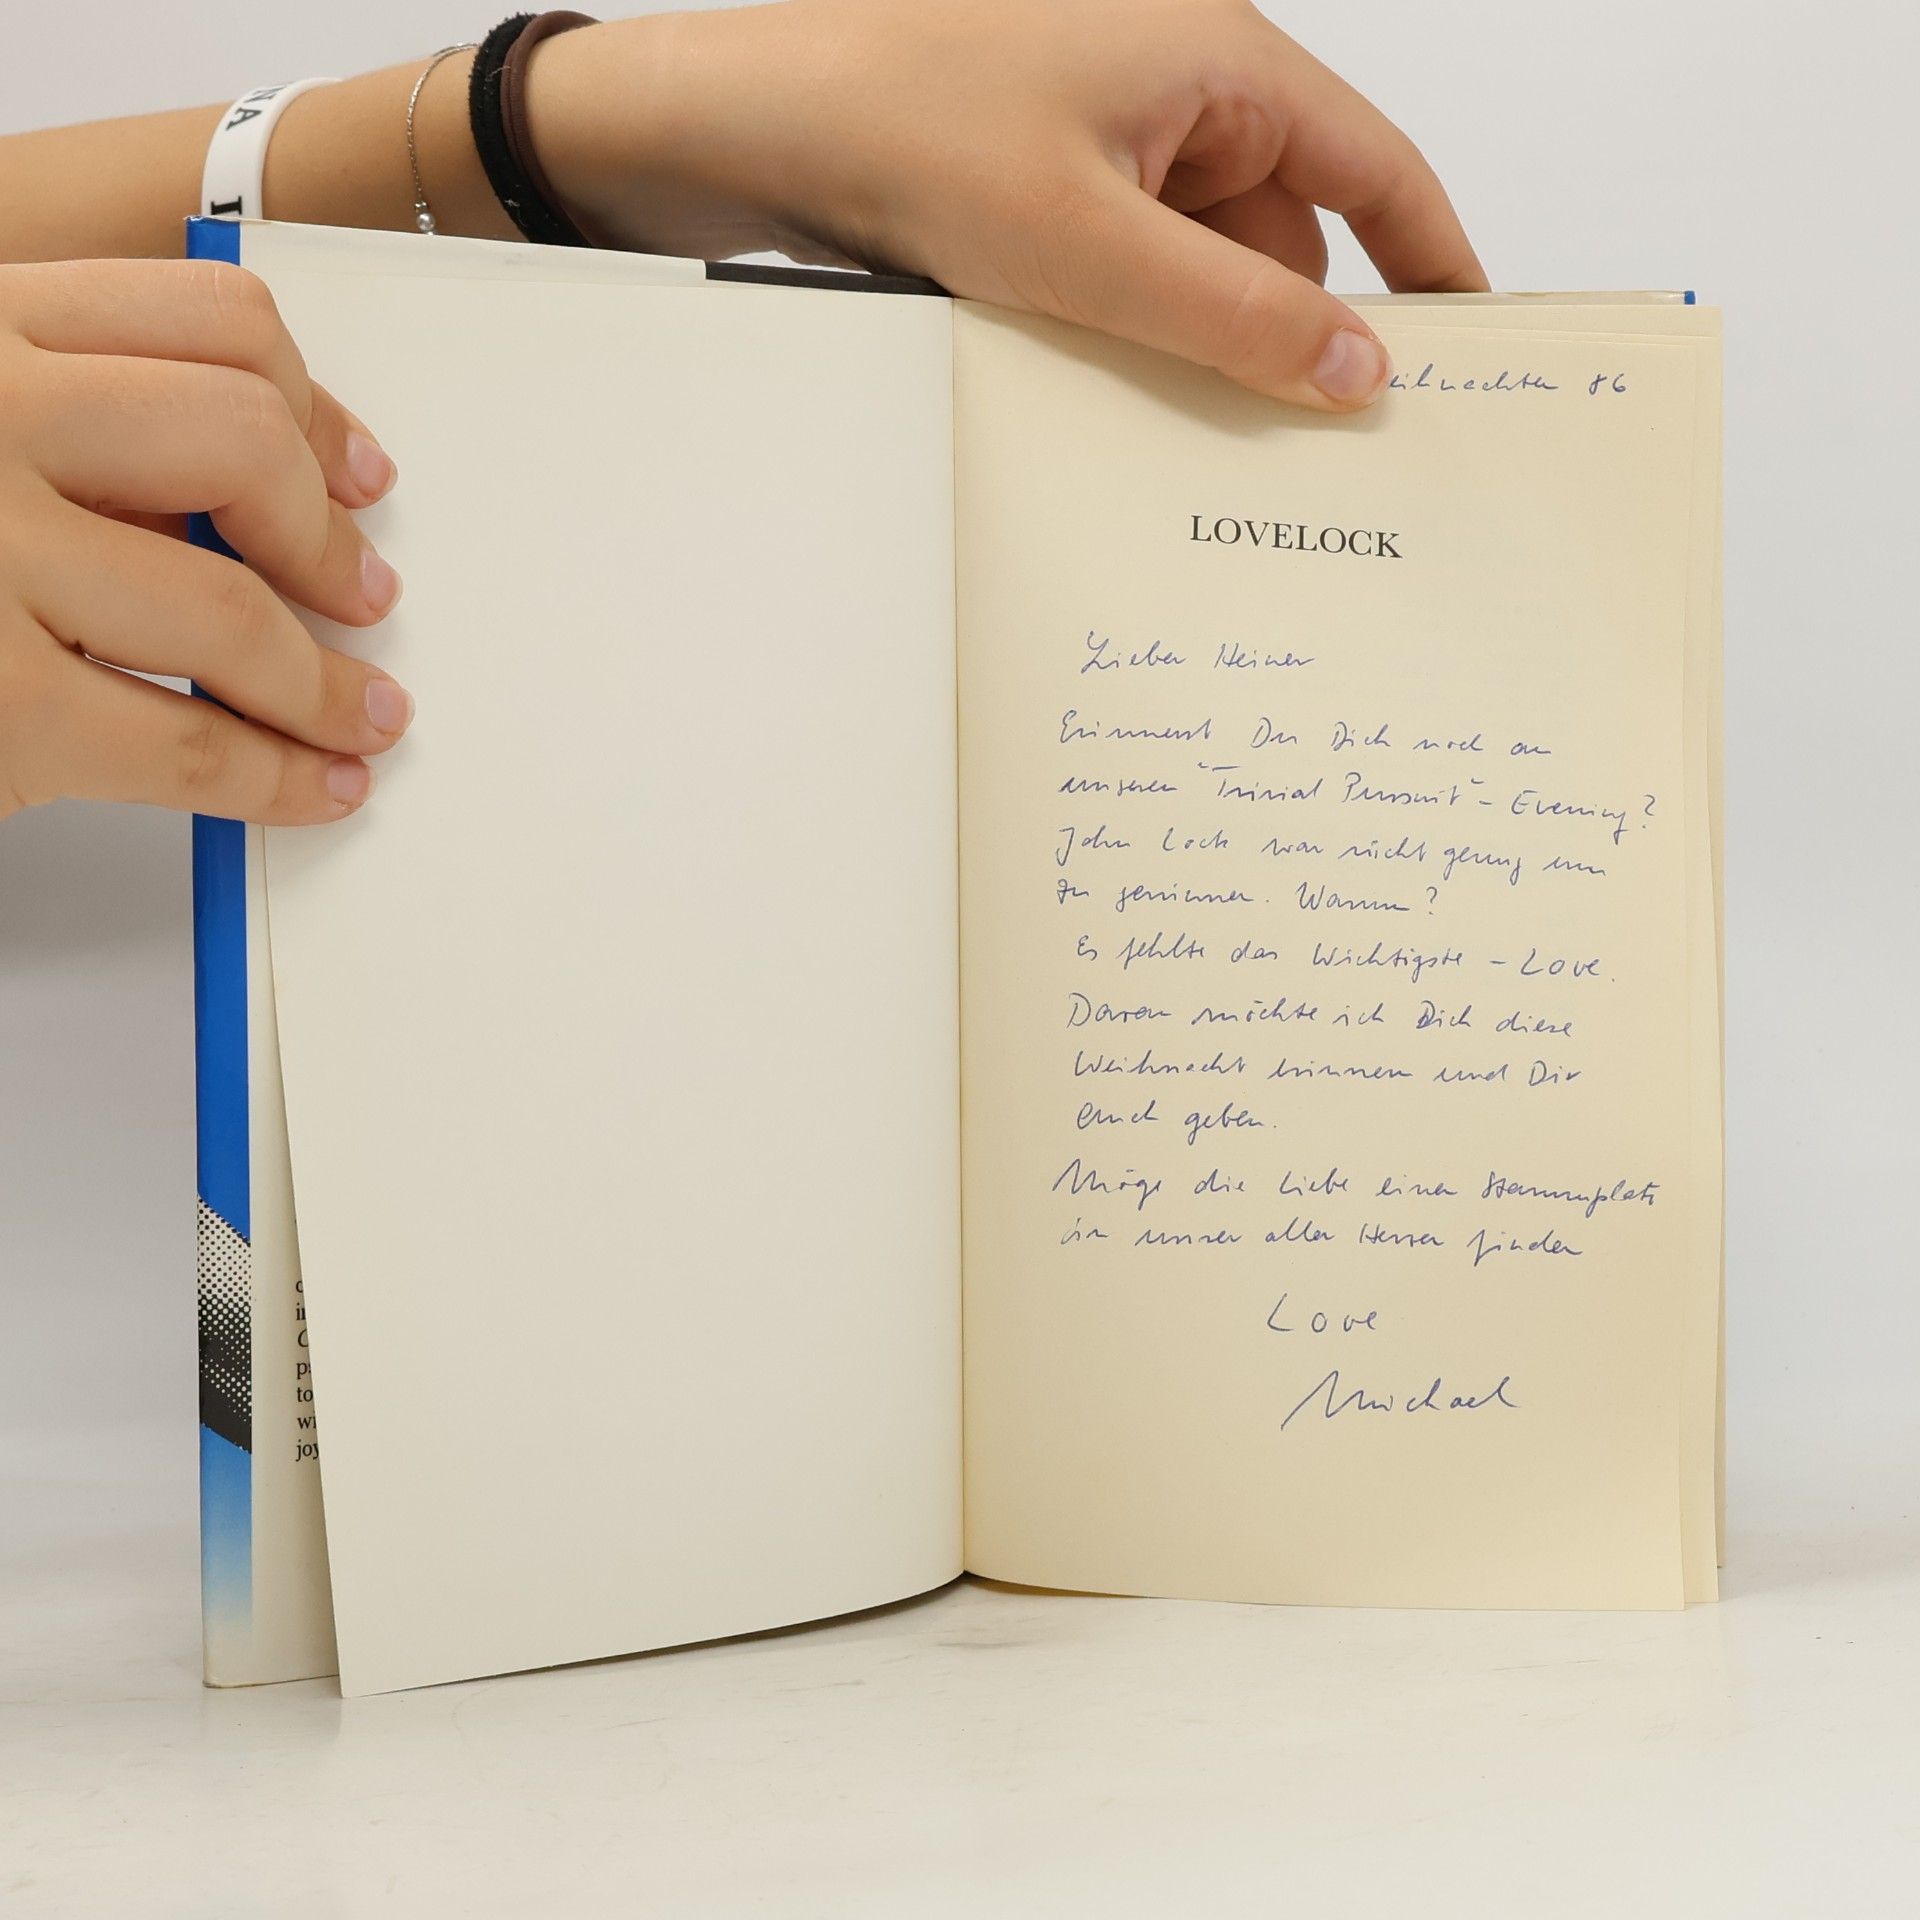 NA
I
eihnachten 86
LOVELOCK
Lieber Heiner
Erinnerst Du Dich noch an
unseren "Trivial Pursuit" - Evening?
John Lock war nicht genug um
zu gewinnen. Warum?
Es fehlte das Wichtigste - Love.
Daran möchte ich Dich diese
Weihnacht erinnern und Dir
auch geben.
Möge die Liebe einen Stammplatz
in unser aller Herzen finden
Love
Michael
o
i
C
p
to
wi
joy